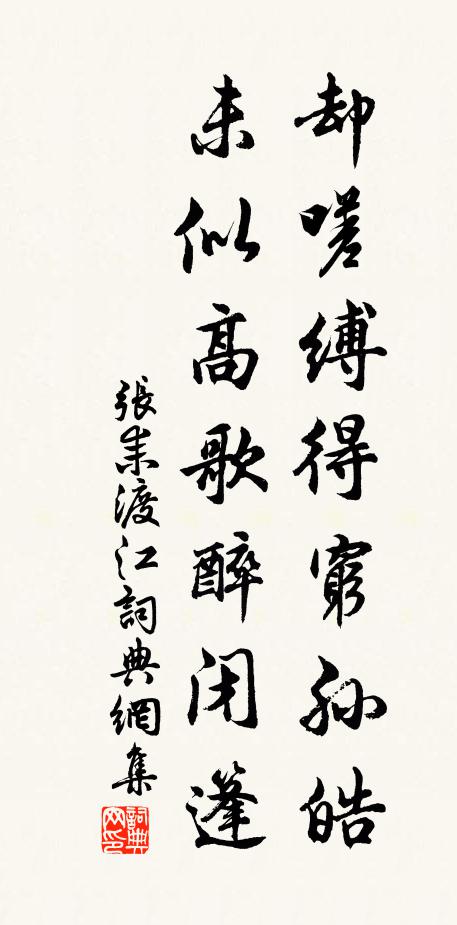 却嗟縛得窮孫皓
未似高歌醉閉蓬
張耒渡江詞典網集
詞典网印